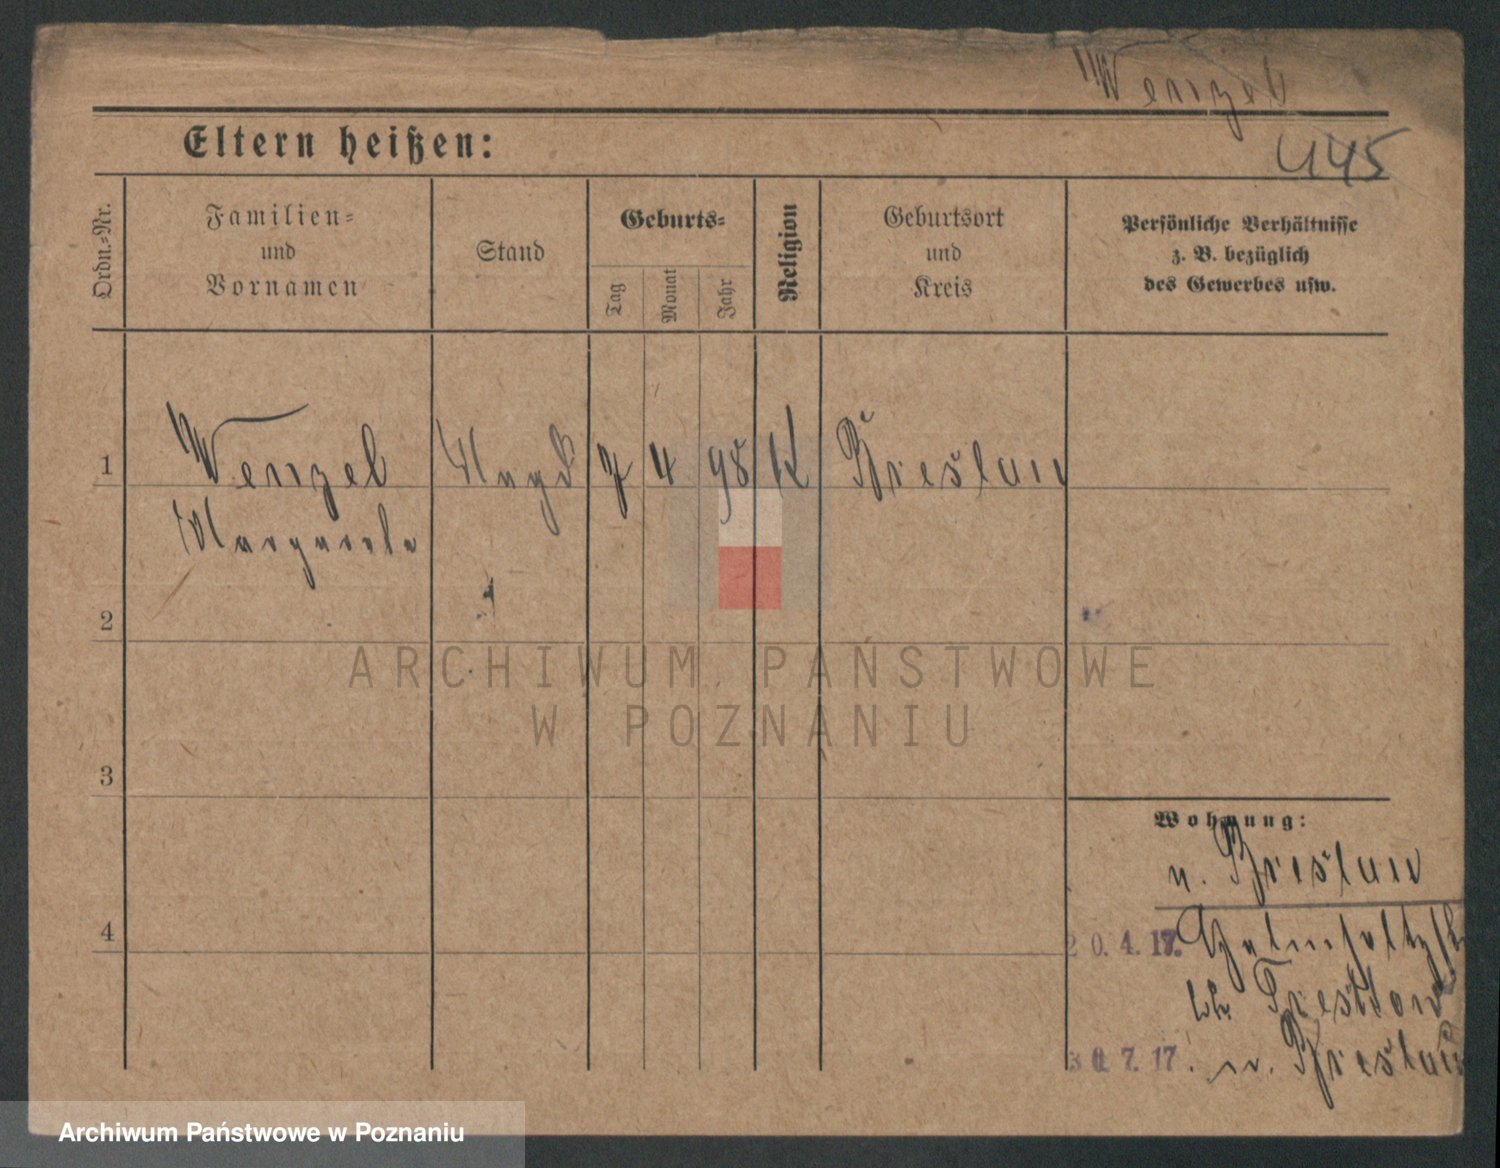 Wenzel
Eltern heißen:
445
Ordn.-Nr.
Familien-
und
Vornamen
Stand
Geburts-
Tag
Monat
Jahr
Religion
Geburtsort
und
Kreis
Persönliche Verhältnisse
z. B. bezüglich
des Gewerbes usw.
1 Wenzel Magd 7 4 98 K Breslau
Margarete
2
ARCHIWUM PAŃSTWOWE
W POZNANIU
3
Wohnung:
n. Breslau
4
20. 4. 17.
b.
30. 7. 17. n. Breslau
Archiwum Państwowe w Poznaniu